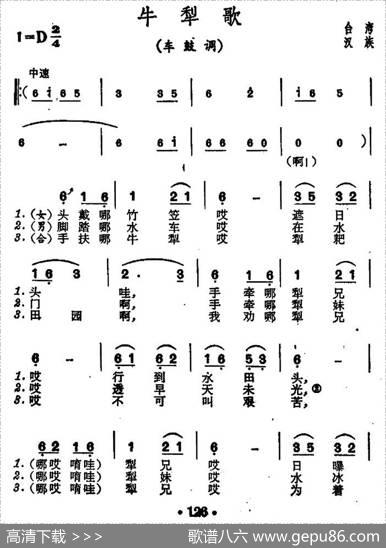 牛犁歌
(车鼓调)
1=D 2/4
台湾
汉族
中速
(6 i 65 3 35 6 2 i 65
6 - 6 i 66 60 0 0)
(啊!)
6· 16 2 21 6· - 35 32
1.(女)头戴哪竹笠哎遮日
2.(男)脚踏哪水车哎在水
3.(合)手扶哪牛犁哎犁耙
16 3· 2· 3 16 21
1.头哇,手牵哪犁兄
2.门啊,手牵哪犁妹
3.田园啊,我劝哪犁兄
6 - 61 62 16 53 6 -
1.哎行到水田头,
2.哎透早天未光,①
3.哎不可叫艰苦,
62 16 2 21 6 - 35 32
1.(哪哎唷哇)犁兄哎日曝
2.(哪哎唷哇)犁妹哎水冰
3.(哪哎唷哇)犁兄哎为着
·126·
高清下载 >>>
歌谱八六 www.gepu86.com